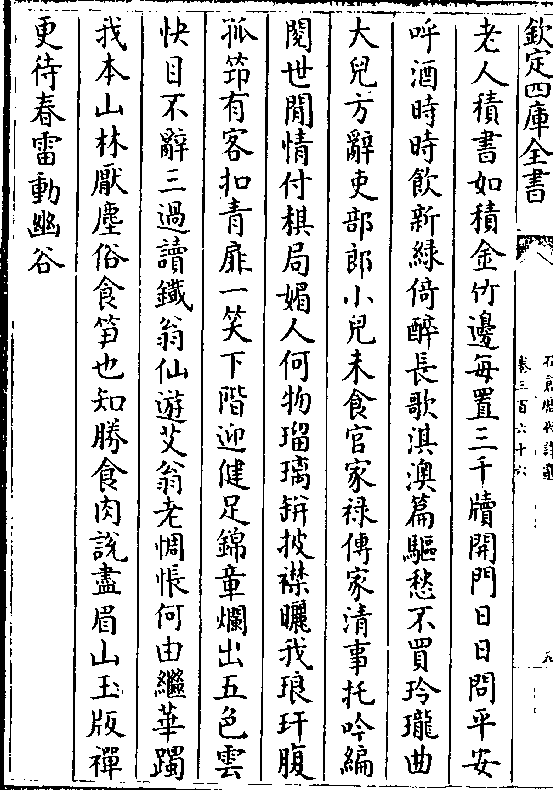 欽定四庫全書
卷三百六十六
老人積書如積金竹邊每置三千牘開門日日問平安
呼酒時時飲新緑倚醉長歌淇澳篇驅愁不買玲瓏曲
大兒方辭吏部郎小兒未食官家禄傳家清事托吟編
閲世閒情付棋局媚人何物瑠璃缾披襟曬我琅玕腹
孤笻有客扣青扉一笑下階迎健足錦章爛出五色雲
快目不辭三過讀鐵翁仙遊艾翁老惆悵何由繼華躅
我本山林厭塵俗食笋也知勝食肉説盡眉山玉版禪
更待春雷動幽谷